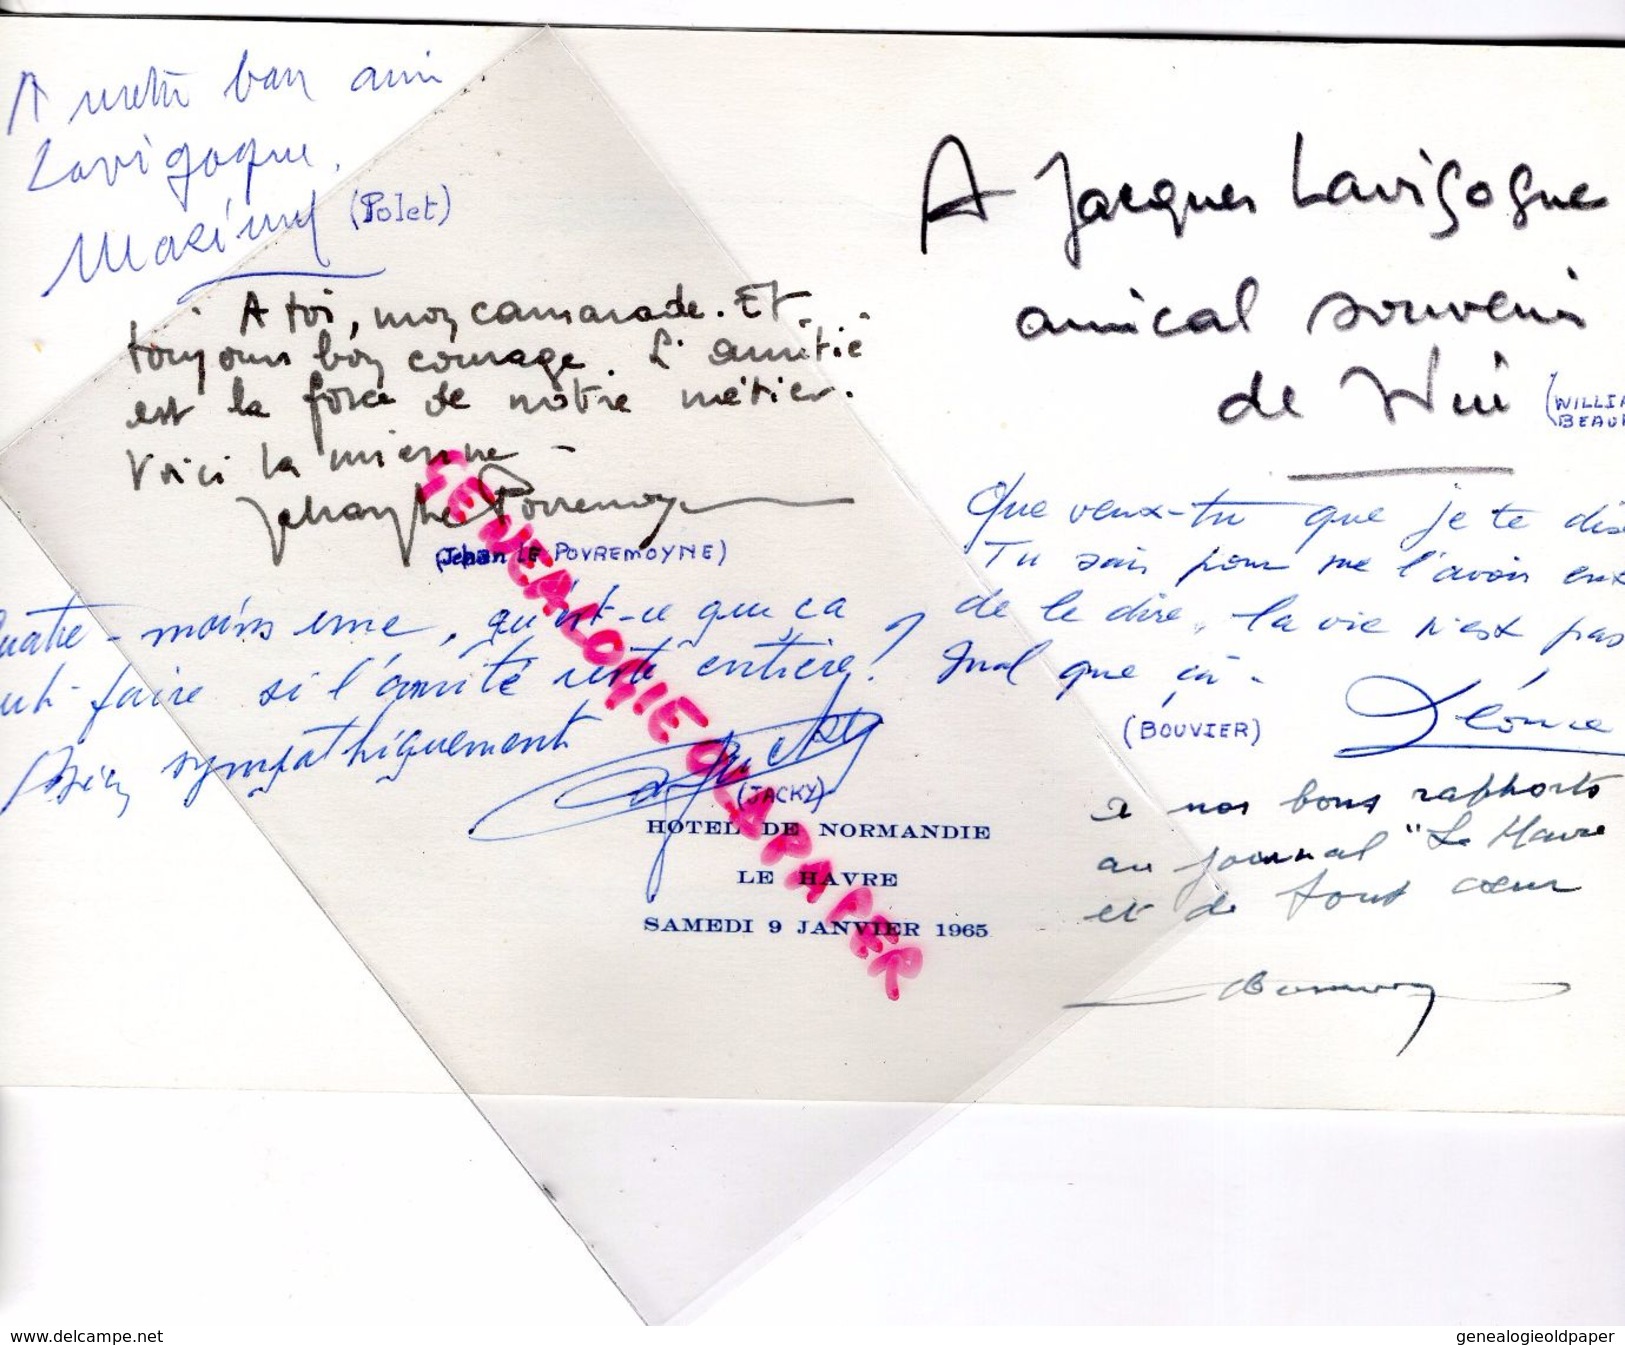 A notre bon ami
Lavigogne.
(Polet)
A Jacques Lavigogne
amical souvenir
de Wili
(WILLIA
BEAU
A toi, mon camarade. Et
toujours bon courage. L'amitié
est la force de notre métier.
Voici la mienne -
Jehan Le Povremoyne
(Jehan LE POVREMOYNE)
Que veux-tu que je te dis
Tu sais pour me l'avoir
de le dire, la vie n'est pas
mal que ça.
Léonce
(BOUVIER)
uatre-moins une, qu'est-ce que ca
faire si l'amitié reste entière!
Bien sympathiquement
Jacky
(JACKY)
HOTEL DE NORMANDIE
LE HAVRE
SAMEDI 9 JANVIER 1965
A nos bons rapports
au journal "Le Havre
et de tout cœur
GENEALOGIE OLDPAPER
www.delcampe.net
genealogieoldpaper